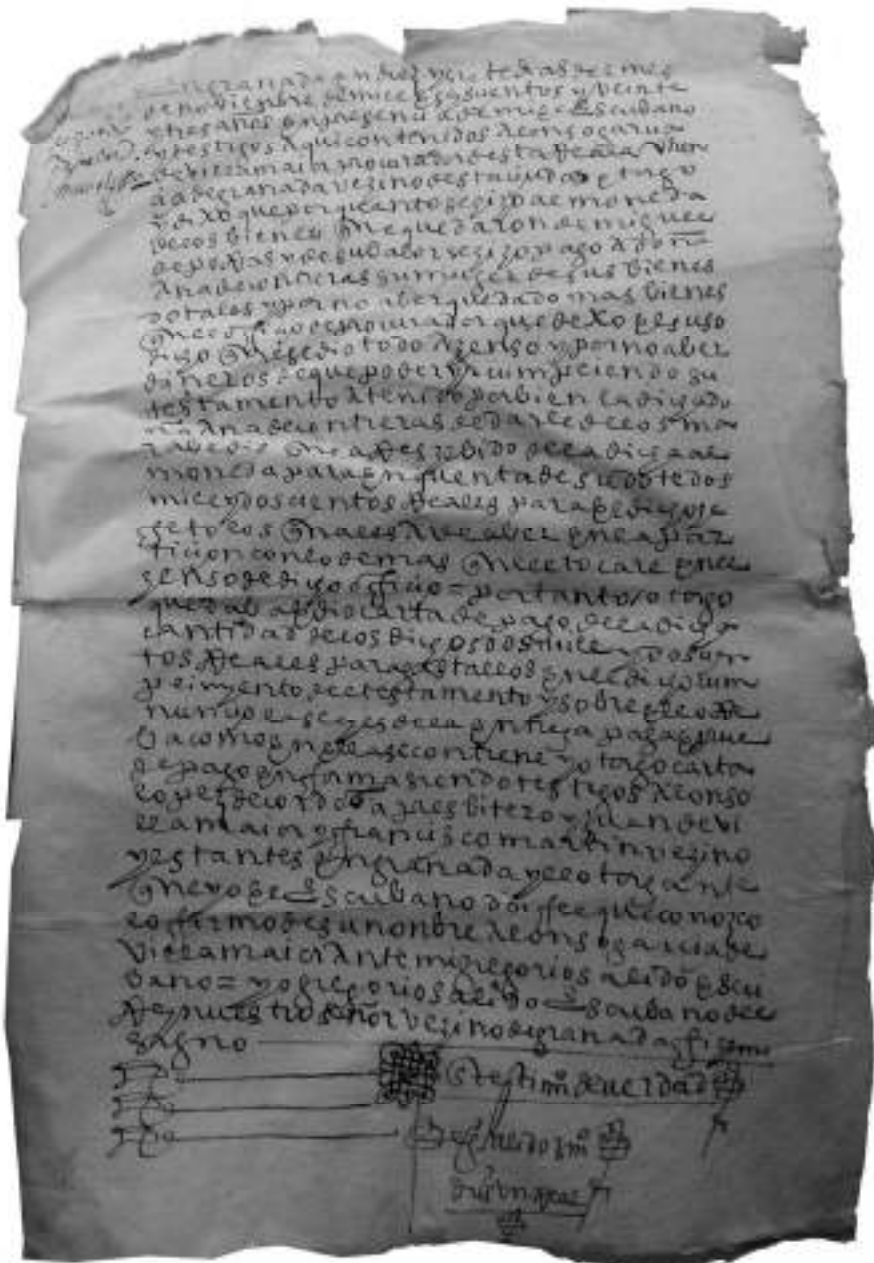 en granada en diez y siete dias del mes
de nobienbre de mill e seysçientos y veinte
y tres años en presençia de mi el escribano
y testigos aqui contenidos alonso garcia
de villamaior procurador desta Real chan
a de granada vezino desta ciudad otorgo
e dixo que por quanto se hizo almoneda
de los bienes que quedaron de miguel
de y de su balor se hizo pago a doña
ana de contreras su muger de sus bienes
dotales y por no aber quedado mas bienes
que el offiçio de procurador que dexo el suso
dicho que se dio todo a zenso y por no aber
dineros de que poder yr cumpliendo su
testamento a tenido por bien la dicha do
ña ana de contreras de darle de los ma
rabedis que a Reszebido de la dicha al
moneda para en quenta de su dote dos
mill y dosçientos Reales para el dicho
efeto los quales a de aber en la par
tiçion con lo demas que le tocare en el
zenso del dicho offiçio = por tanto otorgo
que daba e dio carta de pago de la dicha
cantidad de los dichos dos mill y dosçien
tos Reales para gastallos en el dicho cum
plimyento del testamento y sobre ello Re
nunçio las leyes de la entrega paga e prue
ba como en ellas se contiene y otorgo carta
de pago en forma siendo testigos alonso
lopez de cordoba presbitero y juan de vi
llamaior y françisco martin vezino
y estantes en granada y el otorgante
que yo el escribano doi ffee que conozco
lo firmo de su nonbre alonso garcia de
villamaior ante mi gregorio salido escri
bano = yo gregorio salido escribano del
Rey nuestro señor vezino de granada fize mi
signo
en testimº de verdad